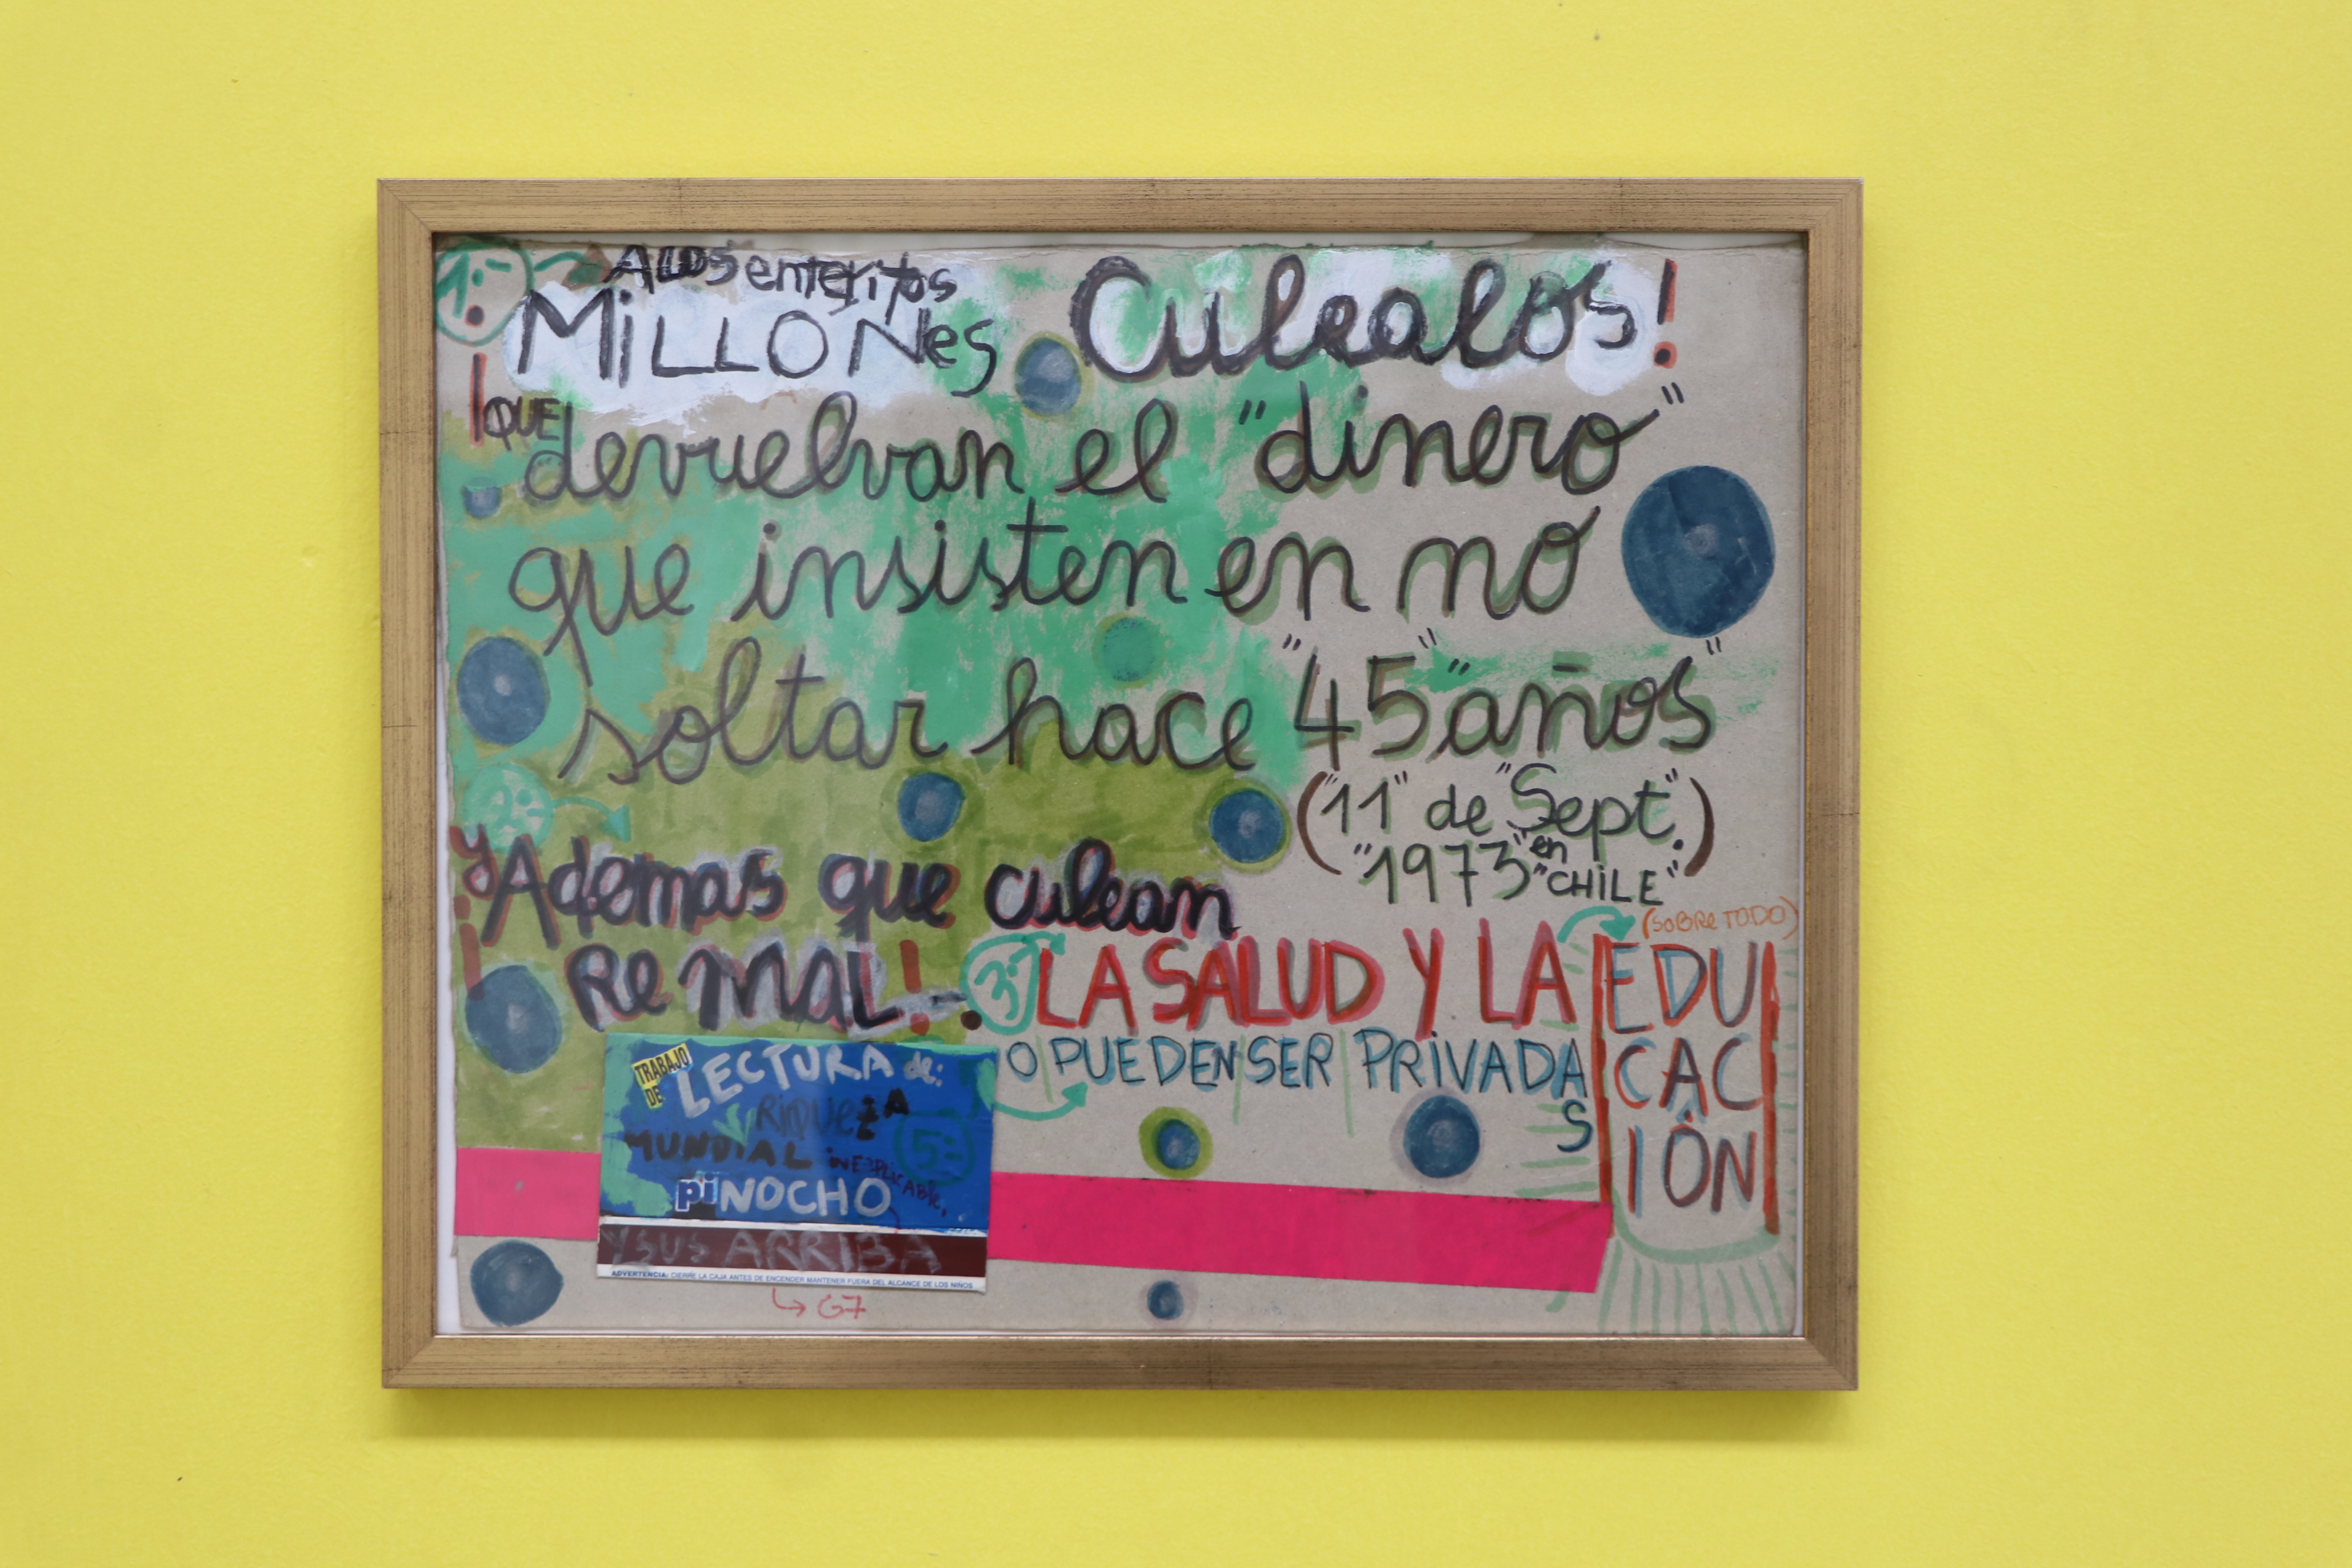 1:
A LOS enteritos
MiLLONes Culealos!
¡QUE devuelvan el "dinero"
que insisten en no
soltar hace "45" "años"
("11" de "Sept".)
"1973" en "CHiLE"
2:
y Ademas que culean
¡Re MAL!
3:- LA SALUD Y LA (SOBRE TODO) EDU
CAC
IÓN
O PUEDEN SER PRiVADA
S
TRABAJO
DE LECTURA de:
RiQUEZA
MUNDiAL iNEXPLiCABle, 5:-
piNOCHO
Y SUS ARRIBA
ADVERTENCIA: CIERRE LA CAJA ANTES DE ENCENDER MANTENER FUERA DEL ALCANCE DE LOS NIÑOS
G7